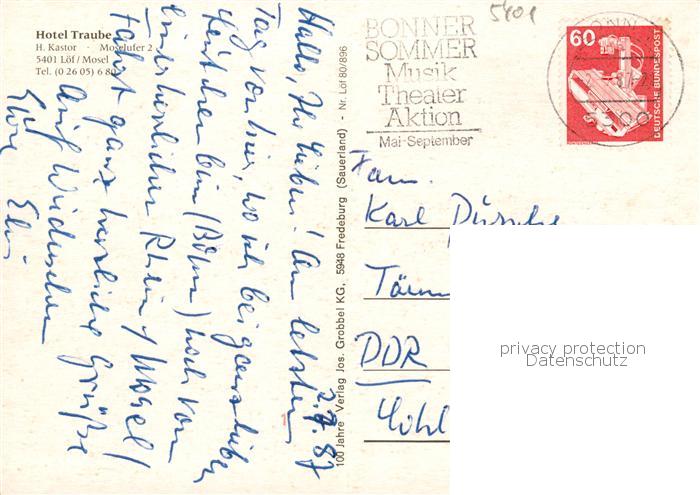 Hotel Traube
H. Kastor · Moselufer 2
5401 Löf/Mosel
Tel. (0 26 05) 6 80
BONNER
SOMMER
Musik
Theater
Aktion
Mai-September
5401
BONN
5300
60
DEUTSCHE BUNDESPOST
100 Jahre Verlag Jos. Grobbel KG, 5948 Fredeburg (Sauerland) - Nr. Löf 80/896
2.7.87
Hallo, Ihr Lieben! Am letzten
Tag von hier, wo ich bei
bin (Bonn) noch von
einer herrlichen Rhein/Mosel/
fahrt ganz herzliche Grüße
Auf Wiedersehen
Eure
Fam.
Karl
DDR
privacy protection
Datenschutz